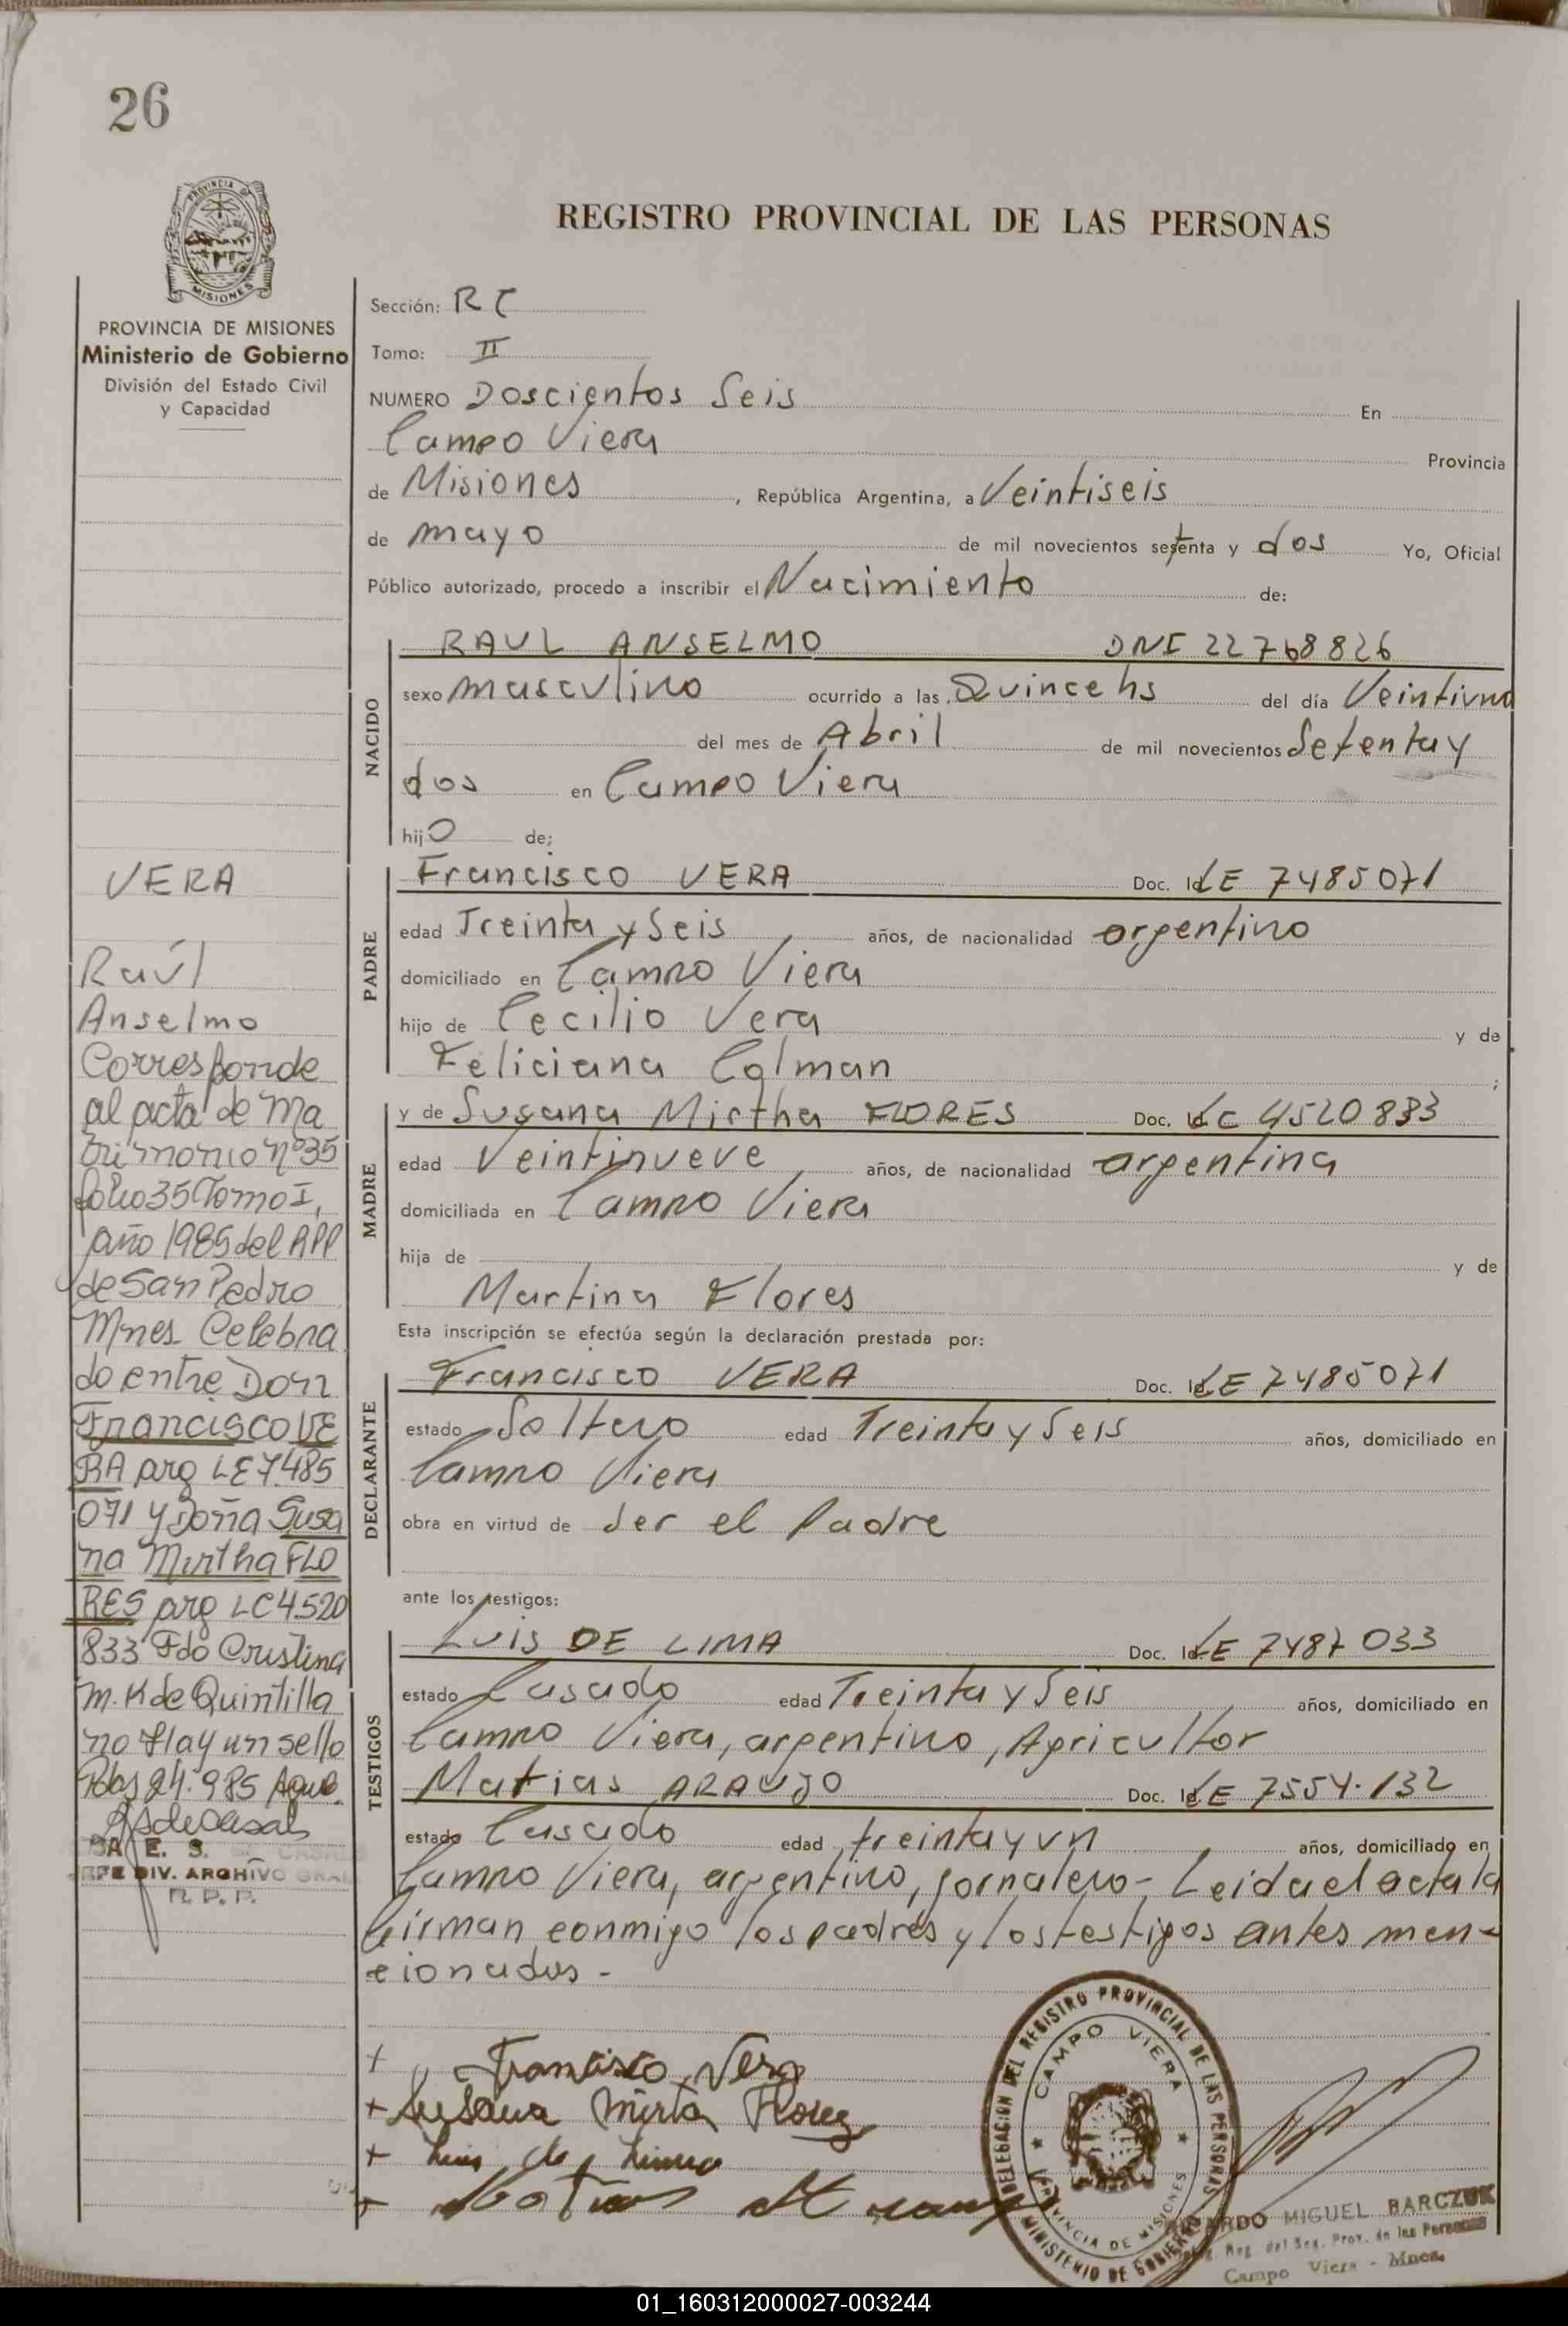 26
PROVINCIA DE
MISIONES
REGISTRO PROVINCIAL DE LAS PERSONAS
PROVINCIA DE MISIONES
Ministerio de Gobierno
División del Estado Civil
y Capacidad
Sección: R C
Tomo: II
NUMERO Doscientos Seis En
Campo Viera Provincia
de Misiones, República Argentina, a Veintiseis
de mayo de mil novecientos setenta y dos Yo, Oficial
Público autorizado, procedo a inscribir el Nacimiento de:
NACIDO
RAUL ANSELMO DNI 22768826
sexo masculino ocurrido a las Quince hs del día Veintiuno
del mes de Abril de mil novecientos Setenta y
dos en Campo Viera
hijo de;
PADRE
Francisco VERA Doc. Id. LE 7485071
edad Treinta y Seis años, de nacionalidad argentino
domiciliado en Campo Viera
hijo de Cecilio Vera y de
Feliciana Colman ;
MADRE
y de Susana Mirtha FLORES Doc. Id. LC 4520833
edad Veintinueve años, de nacionalidad argentina
domiciliada en Campo Viera
hija de y de
Martina Flores
Esta inscripción se efectúa según la declaración prestada por:
DECLARANTE
Francisco VERA Doc. Id. LE 7485071
estado Soltero edad Treinta y Seis años, domiciliado en
Campo Viera
obra en virtud de Ser el Padre
ante los testigos:
TESTIGOS
Luis DE LIMA Doc. Id. LE 7487033
estado Casado edad Treinta y Seis años, domiciliado en
Campo Viera, argentino, Agricultor
Matias ARAUJO Doc. Id. LE 7554.132
estado Casado edad treinta y un años, domiciliado en
Campo Viera, argentino, jornalero- Leida el acta la
firman conmigo los padres y los testigos antes men-
cionados-
VERA
Raúl
Anselmo
Corresponde
al acta de Ma
trimonio nº35
folio 35 Tomo I,
año 1985 del RPP
de San Pedro
Mnes Celebra
do entre Don
Francisco VE
RA arg LE 7.485
071 y Doña Susa
na Mirtha FLO
RES arg LC 4.520
833 Fdo Cristina
M. K de Quintilla
no Hay un sello
Pdas 24.9.85
E. S. CASAL
JEFE DIV. ARCHIVO GRAL
R. P. P.
+ Francisco Vera
+ Susana Mirta Florez
+ Luis de Lima
+ Matias Araujo
DELEGACION DEL REGISTRO PROVINCIAL DE LAS PERSONAS
CAMPO VIERA
PROVINCIA DE MISIONES
MINISTERIO DE GOBIERNO
RICARDO MIGUEL BARCZUK
Reg. del Reg. Prov. de las Personas
Campo Viera - Mnes.
01_160312000027-003244